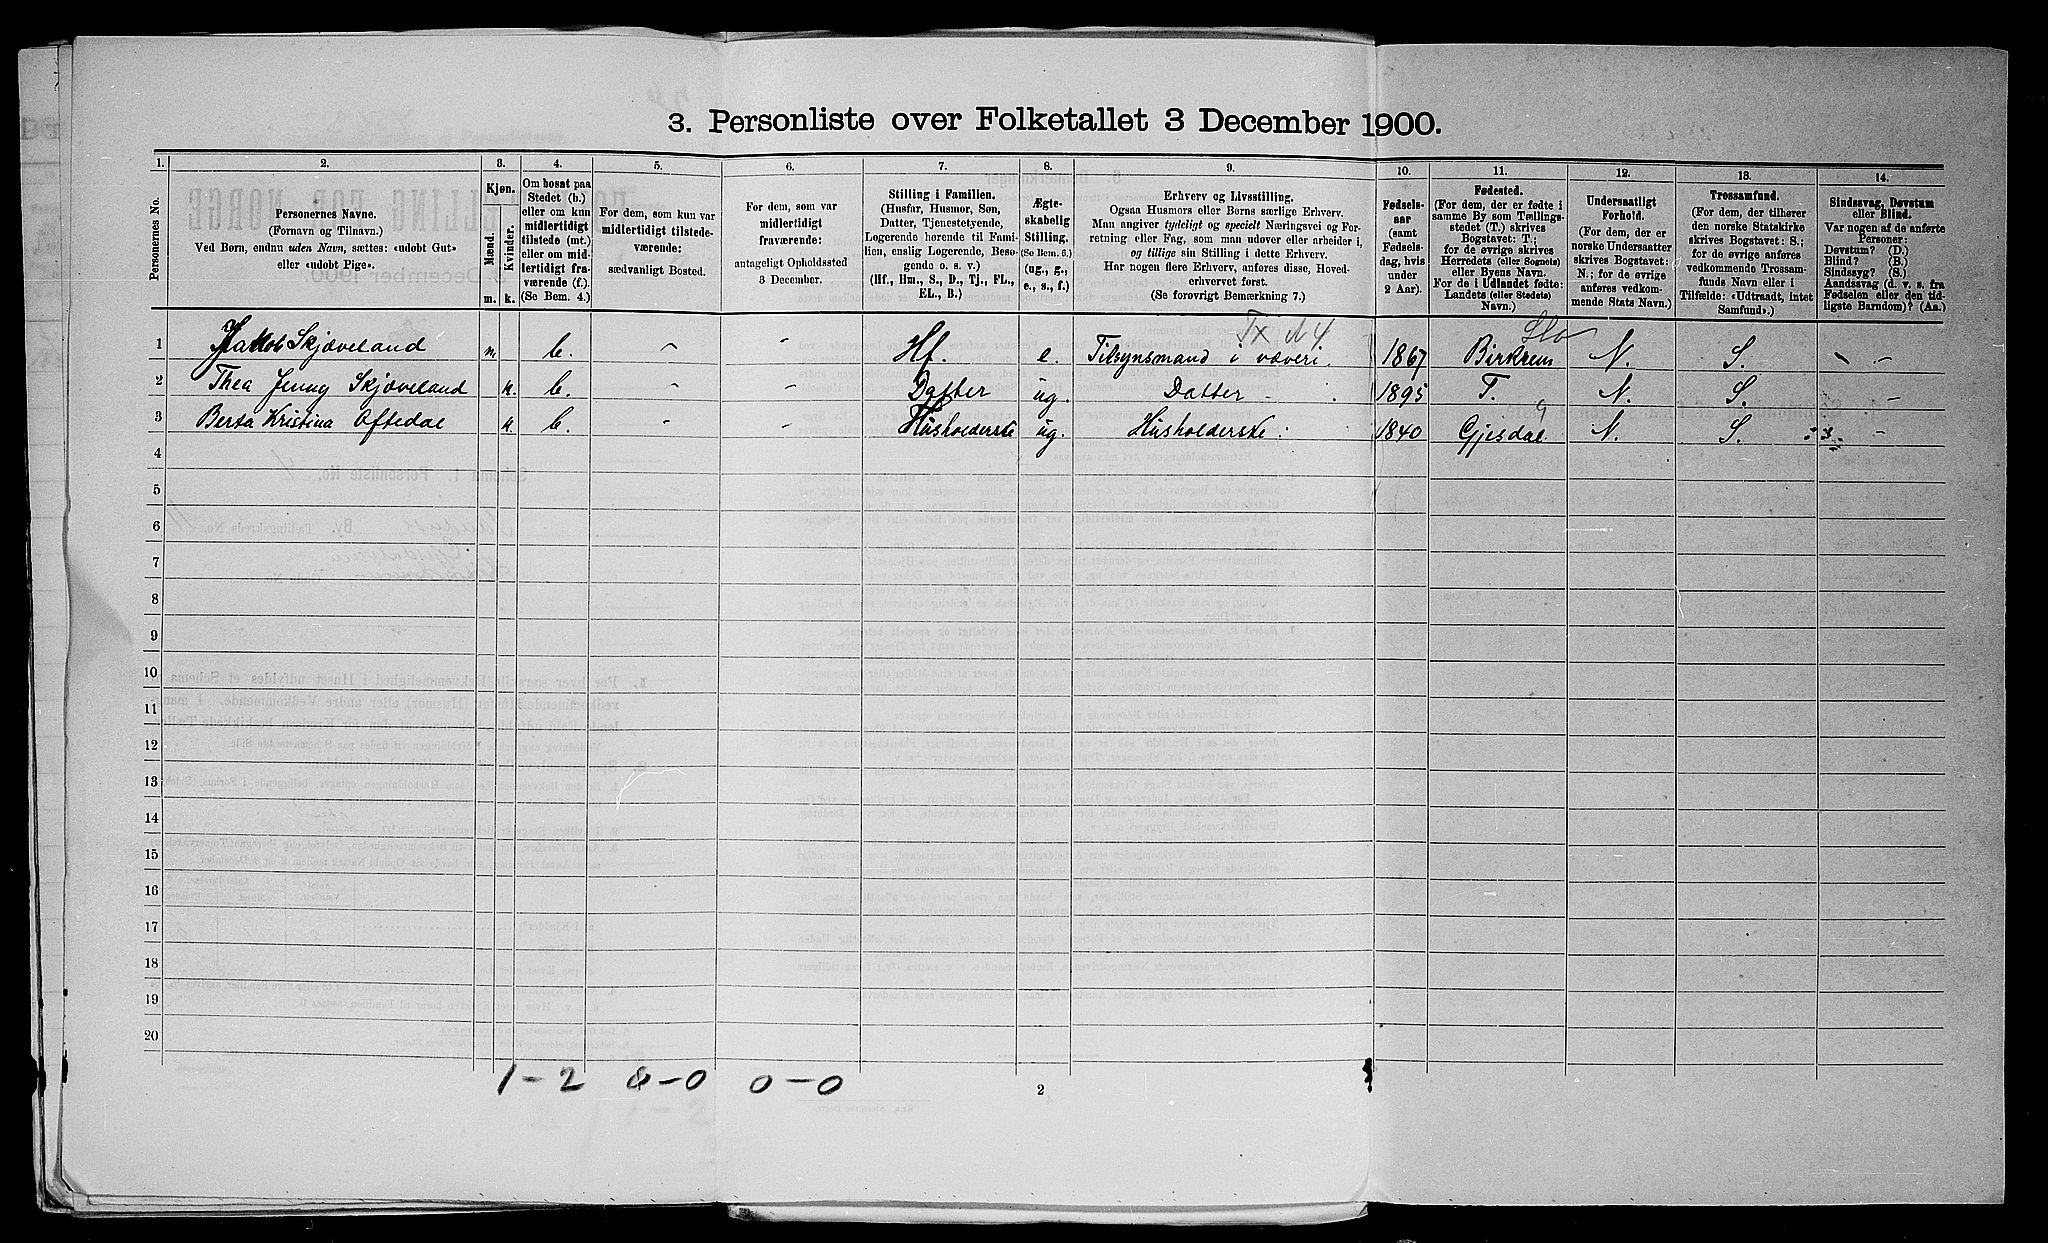 3. Personliste over Folketallet 3 December 1900.
1. 2. 3. 4. 5. 6. 7. 8. 9. 10. 11. 12. 13. 14.
Personernes No.
Personernes Navne.
(Fornavn og Tilnavn.)
Ved Børn, endnu uden Navn, sættes: «udøbt Gut»
eller «udøbt Pige».
Kjøn.
Mænd. Kvinder.
m. k.
Om bosat paa
Stedet (b.)
eller om kun
midlertidigt
tilstede (mt.)
eller om mid-
lertidigt fra-
værende (f.).
(Se Bem. 4.)
For dem, som kun var
midlertidigt tilstede-
værende:
sædvanligt Bosted.
For dem, som var
midlertidigt
fraværende:
antageligt Opholdssted
3 December.
Stilling i Familien.
(Husfar, Husmor, Søn,
Datter, Tjenestetyende,
Logerende hørende til Fami-
lien, enslig Logerende, Besø-
gende o. s. v.)
(Hf., Hm., S., D., Tj., FL.,
EL., B.)
Ægte-
skabelig
Stilling.
(Se Bem. 6.)
(ug., g.,
e., s., f.)
Erhverv og Livsstilling.
Ogsaa Husmors eller Børns særlige Erhverv.
Man angiver tydeligt og specielt Næringsvei og For-
retning eller Fag, som man udøver eller arbeider i,
og tillige sin Stilling i dette Erhverv.
Har nogen flere Erhverv, anføres disse, Hoved-
erhvervet først.
(Se forøvrigt Bemærkning 7.)
Fødsels-
aar
(samt
Fødsels-
dag, hvis
under
2 Aar).
Fødested.
(For dem, der er fødte i
samme By som Tællings-
stedet (T.) skrives
Bogstavet: T.;
for de øvrige skrives
Herredets (eller Sognets)
eller Byens Navn.
For de i Udlandet fødte:
Landets (eller Stedets)
Navn.)
Undersaatligt
Forhold.
(For dem, der er
norske Undersaatter
skrives Bogstavet:
N.; for de øvrige
anføres vedkom-
mende Stats Navn.)
Trossamfund.
(For dem, der tilhører
den norske Statskirke
skrives Bogstavet: S.;
for de øvrige anføres
vedkommende Trossam-
funds Navn eller i
Tilfælde: «Udtraadt, intet
Samfund».)
Sindssvag, Døvstum
eller Blind.
Var nogen af de anførte
Personer:
Døvstum? (D.)
Blind? (B.)
Sindssyg? (S.)
Aandssvag (d. v. s. fra
Fødselen eller den tid-
ligste Barndom)? (Aa.)
Tx N 4 Sto
1 Jakob Skjæveland m. b. - - Hf. e. Tilsynsmand i væveri 1867 Birkrem N. S. -
2 Thea Jenny Skjæveland k. b. - - Datter ug. Datter - 1895 T. N. S. -
3 Berta Kristina Oftedal k. b. - - Husholderske ug. Husholderske 1840 Gjesdal N. S. -
4
5
6
7
8
9
10
11
12
13
14
15
16
17
18
19
20
1-2 0-0 0-0
2